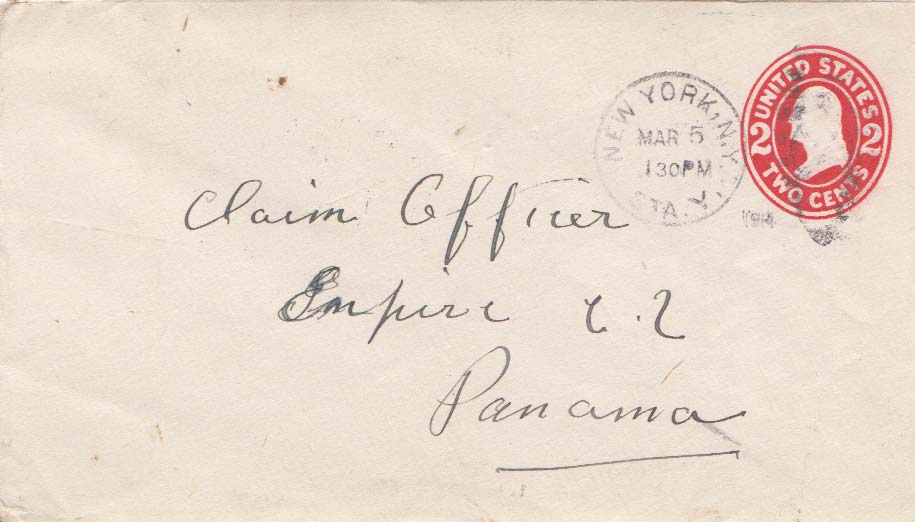 UNITED STATES
2 2
TWO CENTS
NEW YORK, N.Y.
MAR 5
130PM
STA. Y.
1914
Claim Officer
Empire C.Z
Panama